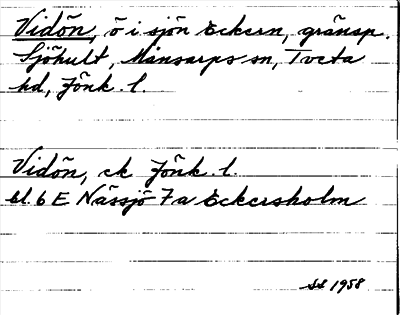 Vidön, ö i sjön Eckern, gränsp.
Sjöhult, Månsarps sn, Tveta
hd, Jönk. l.
Vidön, ek Jönk. l.
bl. 6 E Nässjö 7a Eckersholm
SS 1958